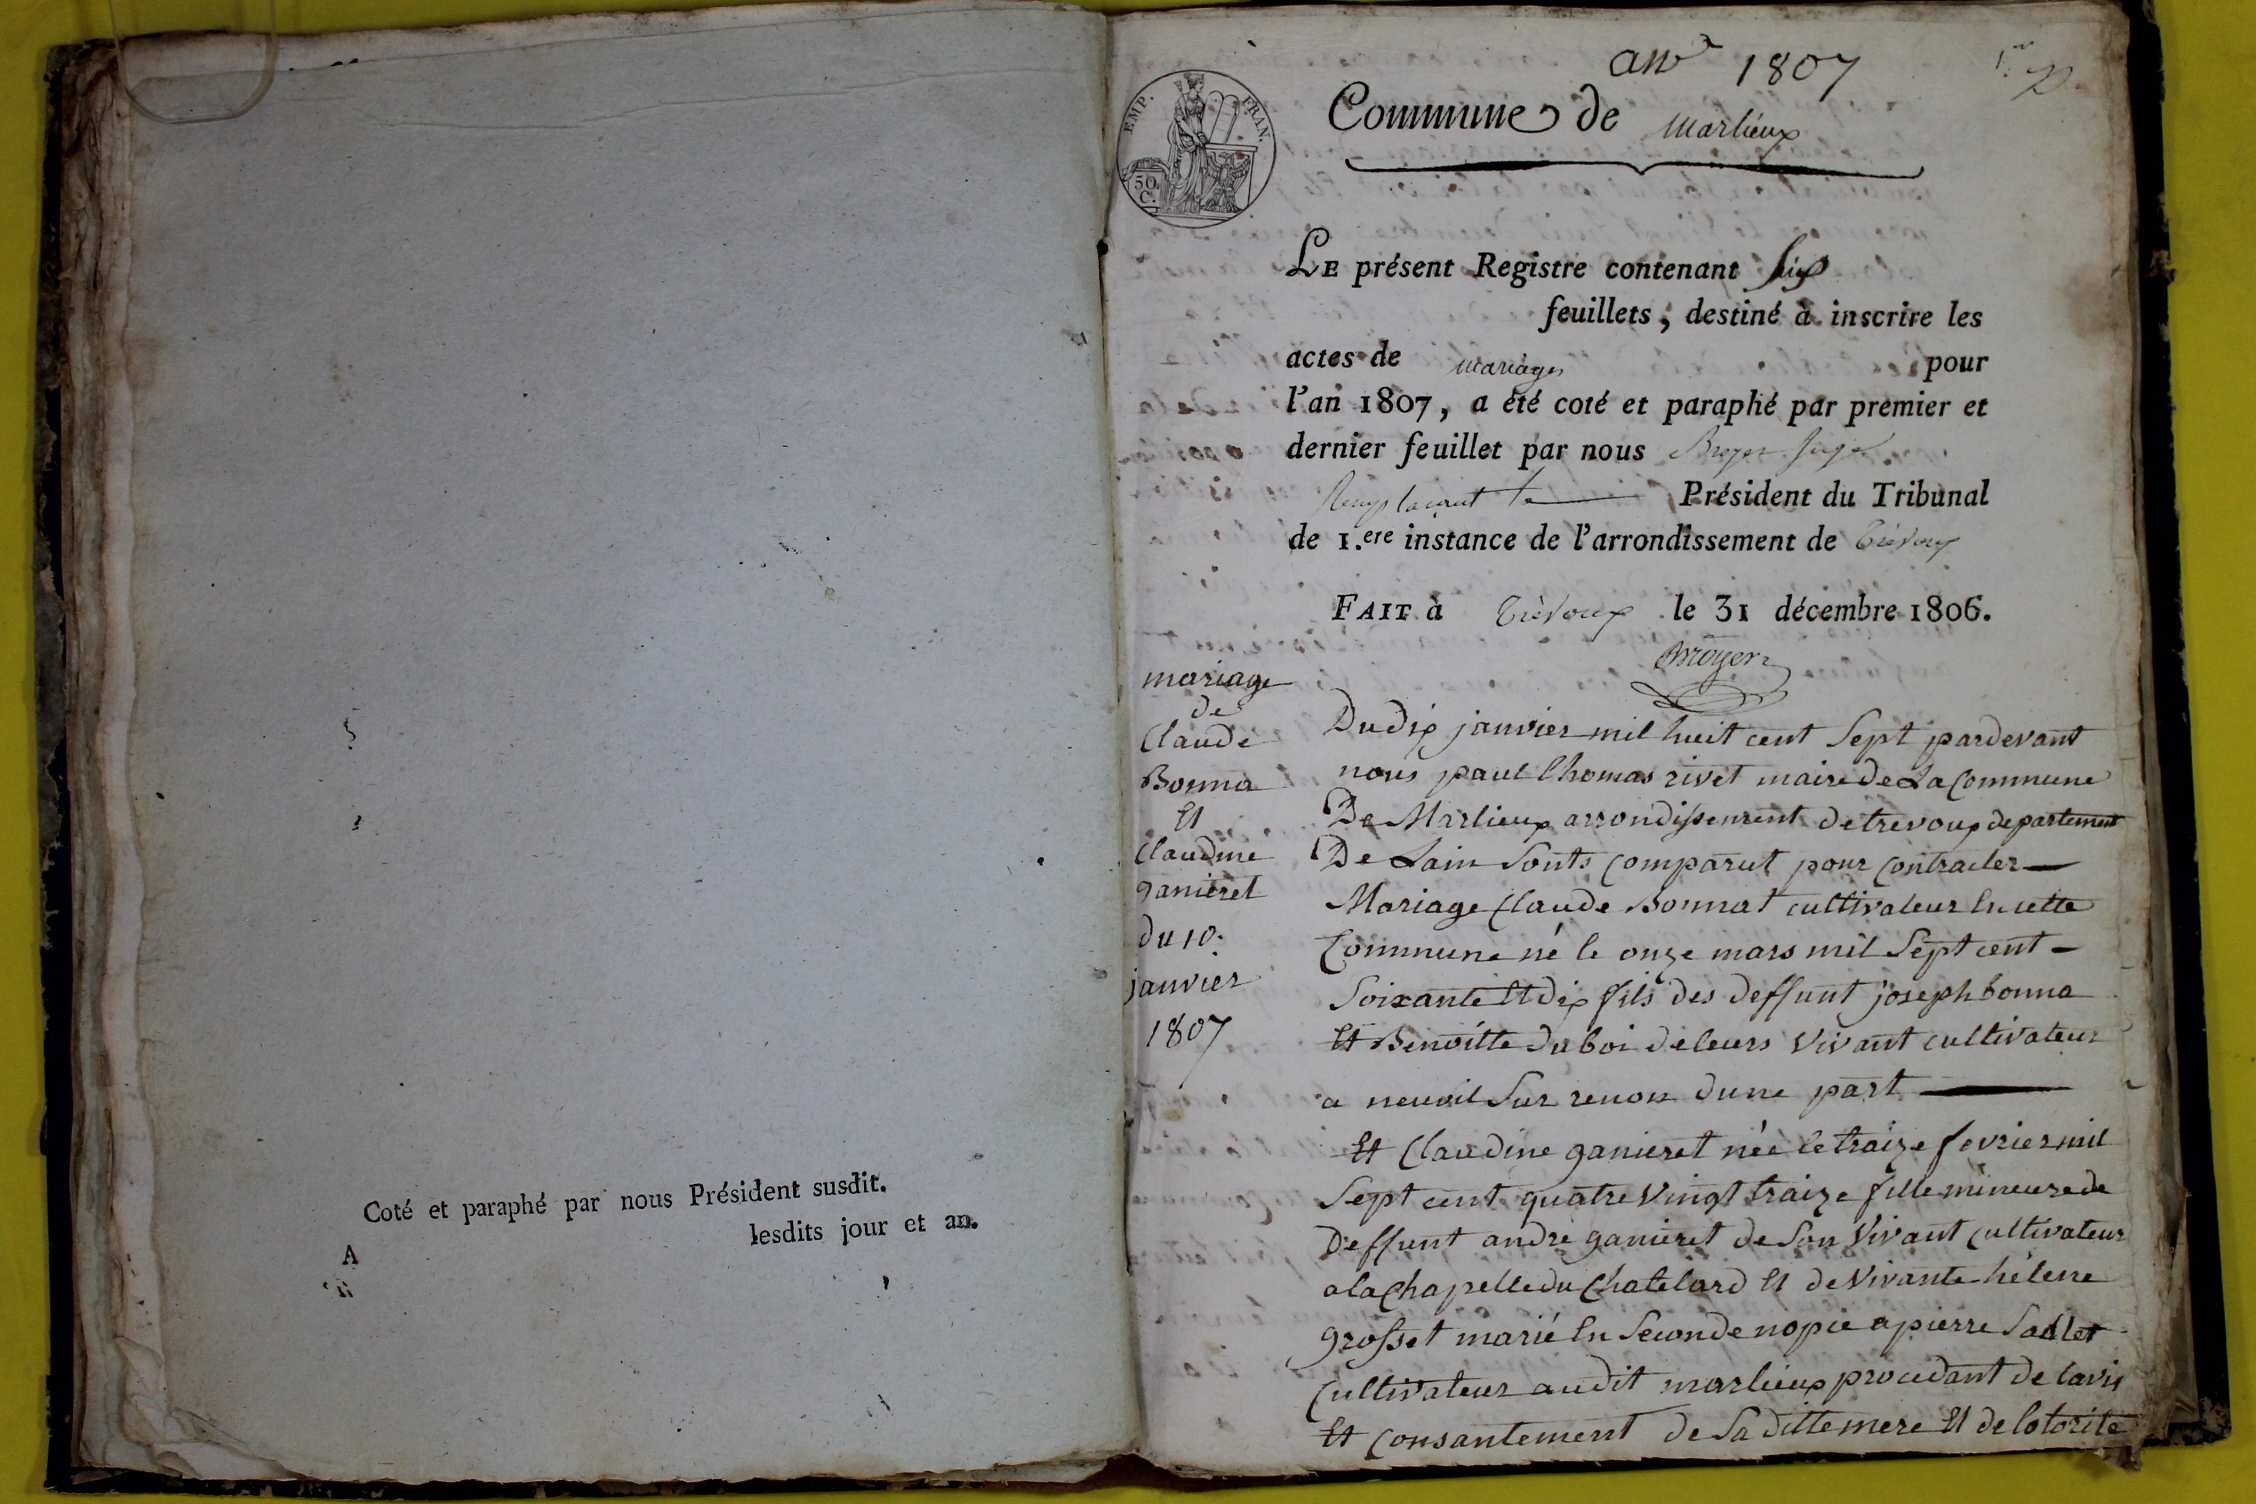 Coté et paraphé par nous Président susdit.
lesdits jour et an.
A
an 1807
Commune de Marlieux
EMP. FRAN.
50 C.
LE présent Registre contenant Six
feuillets, destiné à inscrire les
actes de mariages pour
l'an 1807, a été coté et paraphé par premier et
dernier feuillet par nous Broyer Juge
Remplacant le Président du Tribunal
de 1.ere instance de l'arrondissement de Trévoux
FAIT à Trévoux le 31 décembre 1806.
Broyer
mariage
de
Claude
Bonna
Et
Claudine
ganieret
du 10.
janvier
1807
Du dix janvier mil huit cent Sept pardevant
nous paul thomas rivet maire de La Commune
De Marlieux arrondissement de trevoux departement
De Lain Sonts Comparut pour Contracter
Mariage Claude Bonnat cultivateur En cette
Commune né le onze mars mil Sept cent
Soixante Et dix fils des deffunt joseph bonna
Et Benoitte duboi de leurs Vivant cultivateur
a neuvil Sur renon dune part
Et Claudine ganieret née le traize fevrier mil
Sept cent quatre Vingt traize fille mineure de
Deffunt andré ganieret de Son Vivant Cultivateur
a la Chapelle du Chatelard Et de Vivante hélene
grosset marié En Seconde nopce a pierre Sallet
Cultivateur audit marlieux procedant de lavis
Et Consantement de Sa ditte mere Et de lotorité